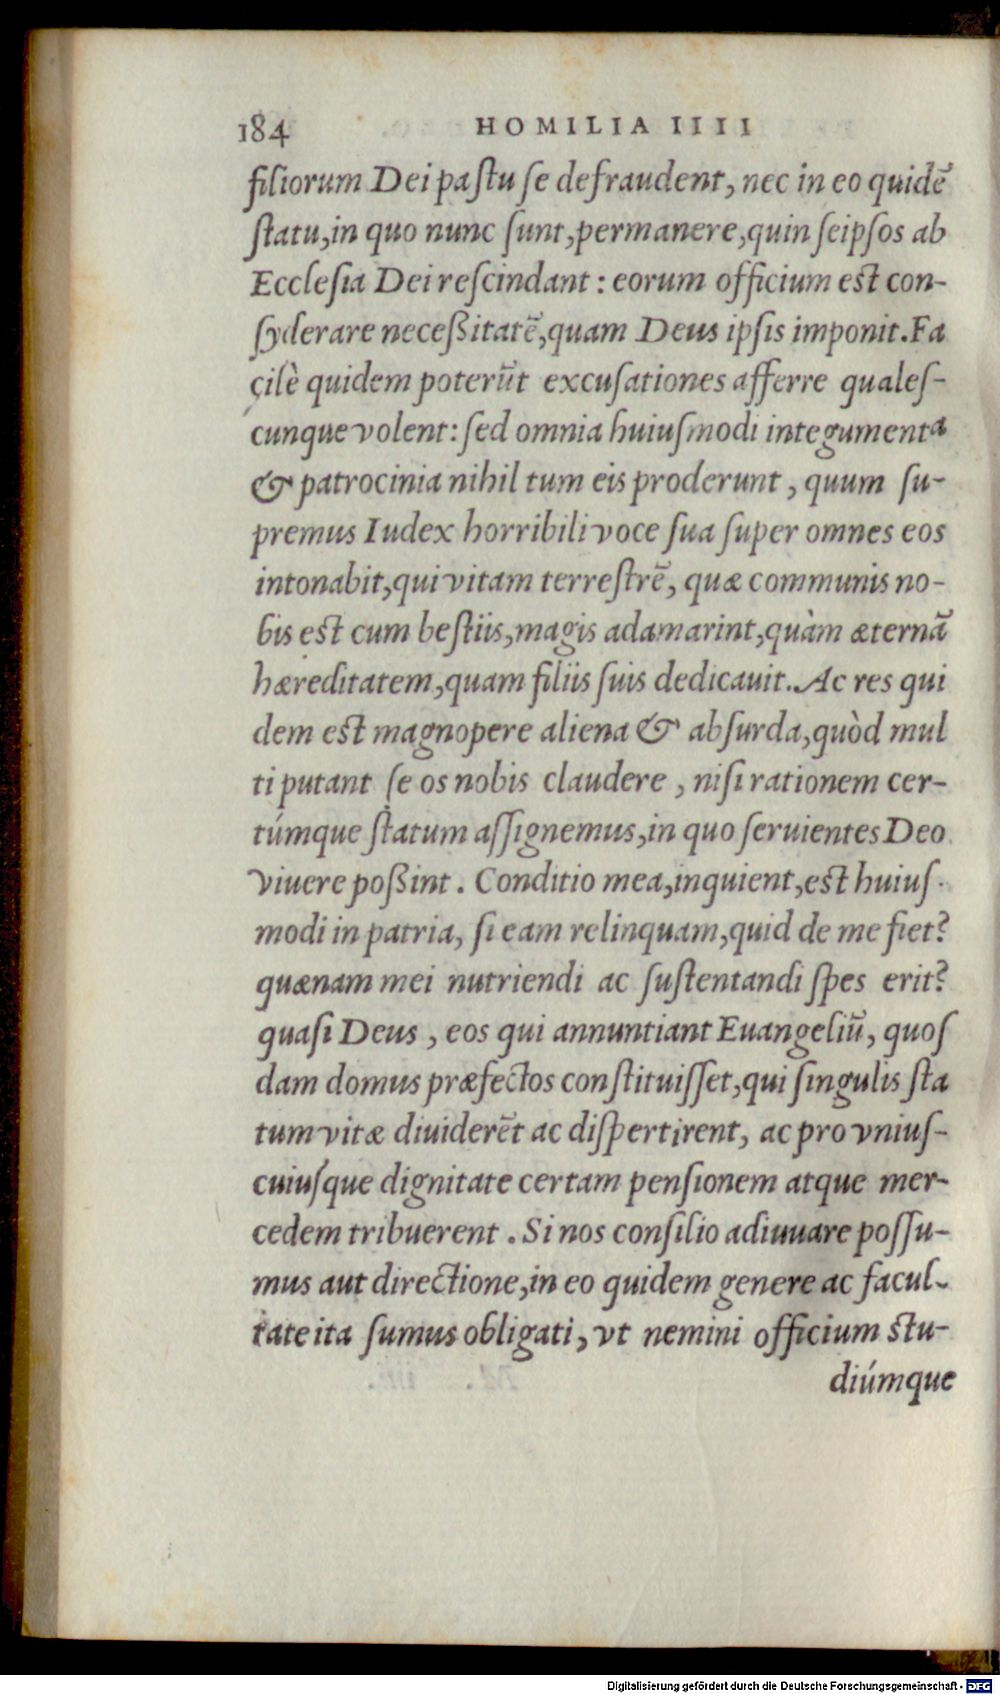 184 HOMILIA IIII
filiorum Dei pastu se defraudent, nec in eo quidē
statu,in quo nunc sunt,permanere,quin seipsos ab
Ecclesia Dei rescindant : eorum officium est con-
syderare neceßitatē,quam Deus ipsis imponit.Fa
cilè quidem poterūt excusationes afferre quales-
cunque volent: sed omnia huiusmodi integumenta
& patrocinia nihil tum eis proderunt , quum su-
premus Iudex horribili voce sua super omnes eos
intonabit,qui vitam terrestrē, quæ communis no-
bis est cum bestiis,magis adamarint,quàm æternā
hæreditatem,quam filiis suis dedicauit. Ac res qui
dem est magnopere aliena & absurda,quòd mul
ti putant se os nobis claudere , nisi rationem cer-
túmque statum assignemus,in quo seruientes Deo
viuere poßint . Conditio mea,inquient,est huius-
modi in patria, si eam relinquam,quid de me fiet?
quænam mei nutriendi ac sustentandi spes erit?
quasi Deus , eos qui annuntiant Euangeliū, quos
dam domus præfectos constituisset,qui singulis sta
tum vitæ diuiderēt ac dispertirent, ac pro vnius-
cuiusque dignitate certam pensionem atque mer-
cedem tribuerent . Si nos consilio adiuuare possu-
mus aut directione,in eo quidem genere ac facul-
tate ita sumus obligati, vt nemini officium stu-
diúmque
Digitalisierung gefördert durch die Deutsche Forschungsgemeinschaft - DFG